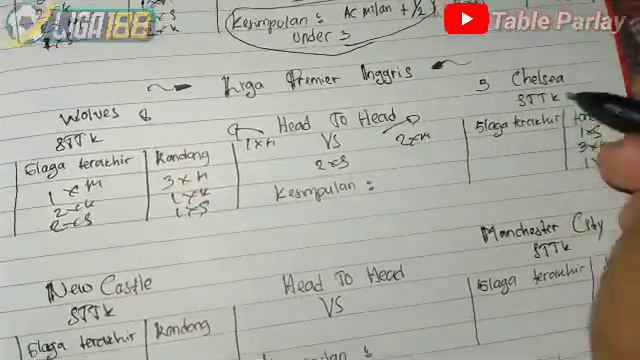 LIGA188
Table Parlay
Kesimpulan : AC Milan + 1/2
under 3
Liga Premier Inggris
Wolves 8
STTK
5laga terakhir
Kandang
1 x M
2 x K
2 x S
3 x M
1 x K
1 x S
Head To Head
1 x M VS 2 x M
2 x S
Kesimpulan :
5 Chelsea
STTK
5laga terakhir
1 x S
3 x M
New Castle
STTK
5laga terakhir
Kandang
Head To Head
VS
Manchester City
STTK
5laga terakhir